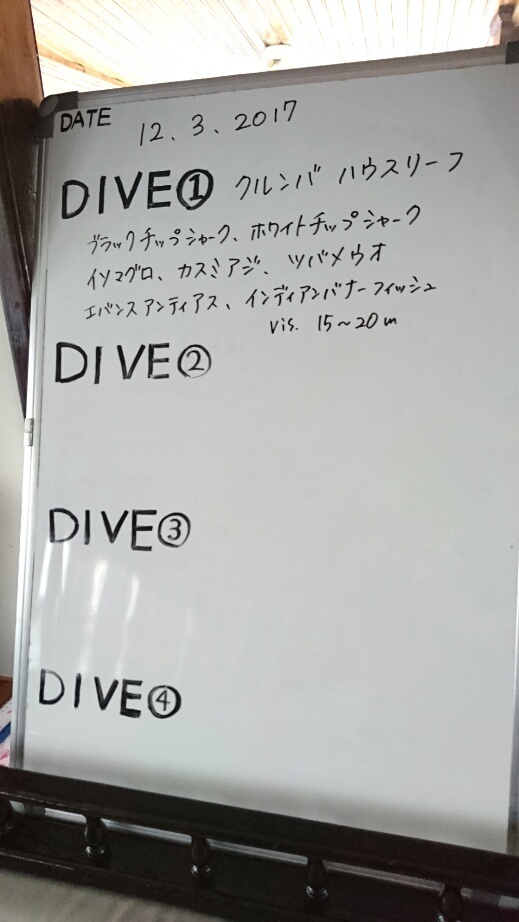 DATE 12.3.2017
DIVE① クルンバ ハウスリーフ
ブラックチップシャーク、ホワイトチップシャーク
イソマグロ、カスミアジ、ツバメウオ
エバンスアンティアス、インディアンバナーフィッシュ
vis. 15~20m
DIVE②
DIVE③
DIVE④